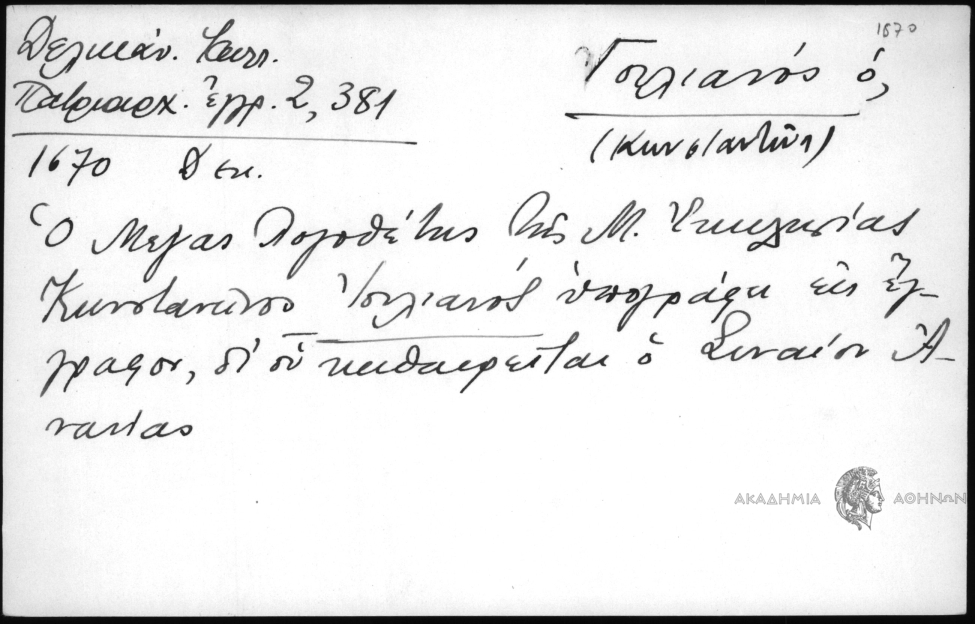 1670
Δελικάν. Καλλ.
Πατριαρχ. ἔγγρ. 2, 381
Ἰουλιανός ὁ,
(Κωνσταντῖνος)
1670 Δεκ.
Ὁ Μέγας Λογοθέτης τῆς Μ. Ἐκκλησίας
Κωνσταντῖνος Ἰουλιανός ὑπογράφει εἰς ἔγ-
γραφον, δι' οὗ καθαιρεῖται ὁ Σιναίου Ἀ-
νανίας
ΑΚΑΔΗΜΙΑ ΑΘΗΝΩΝ